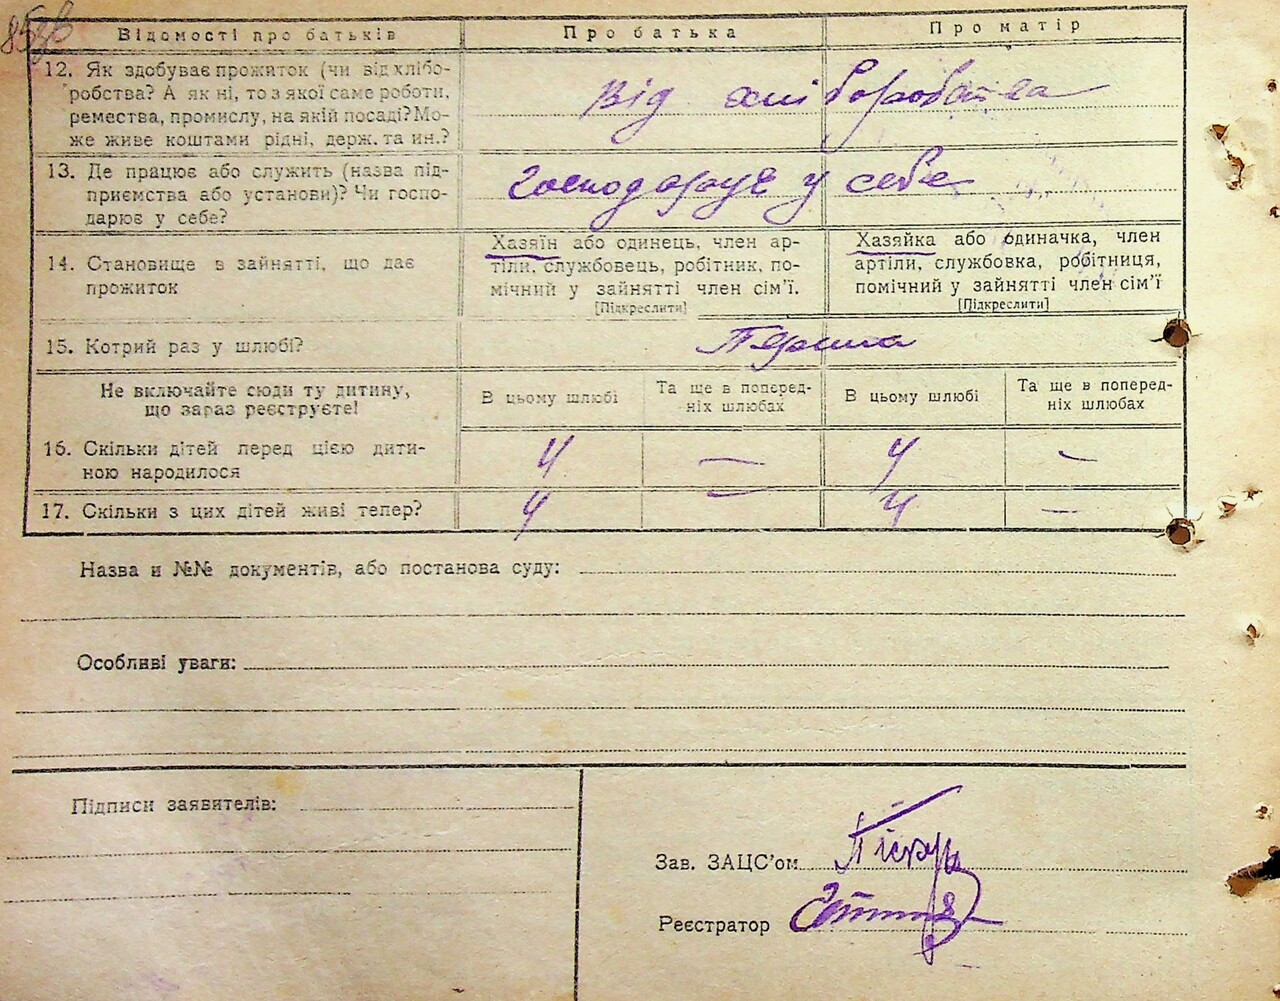 85зв
Відомості про батьків
Про батька
Про матір
12. Як здобуває прожиток (чи від хлібо-
робства? А як ні, то з якої саме роботи,
ремества, промислу, на якій посаді? Мо-
же живе коштами рідні, держ. та ин.?
Від хліборобства
13. Де працює або служить (назва під-
приємства або установи)? Чи госпо-
дарює у себе?
Господарує у себе
14. Становище в зайнятті, що дає
прожиток
Хазяїн або одинець, член ар-
тіли, службовець, робітник, по-
мічний у зайнятті член сім'ї.
[Підкреслити]
Хазяйка або одиначка, член
артіли, службовка, робітниця,
помічний у зайнятті член сім'ї
[Підкреслити]
15. Котрий раз у шлюбі?
Не включайте сюди ту дитину,
що зараз реєструєте!
В цьому шлюбі
Та ще в поперед-
ніх шлюбах
В цьому шлюбі
Та ще в поперед-
ніх шлюбах
16. Скільки дітей перед цією дити-
ною народилося
4 — 4 —
17. Скільки з цих дітей живі тепер?
4 — 4 —
Назва и №№ документів, або постанова суду:
Особливі уваги:
Підписи заявителів:
Зав. ЗАЦС'ом
Реєстратор